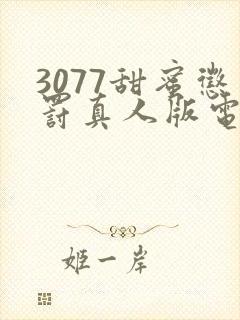 3077甜蜜懲
罰真人版電
姬一岸